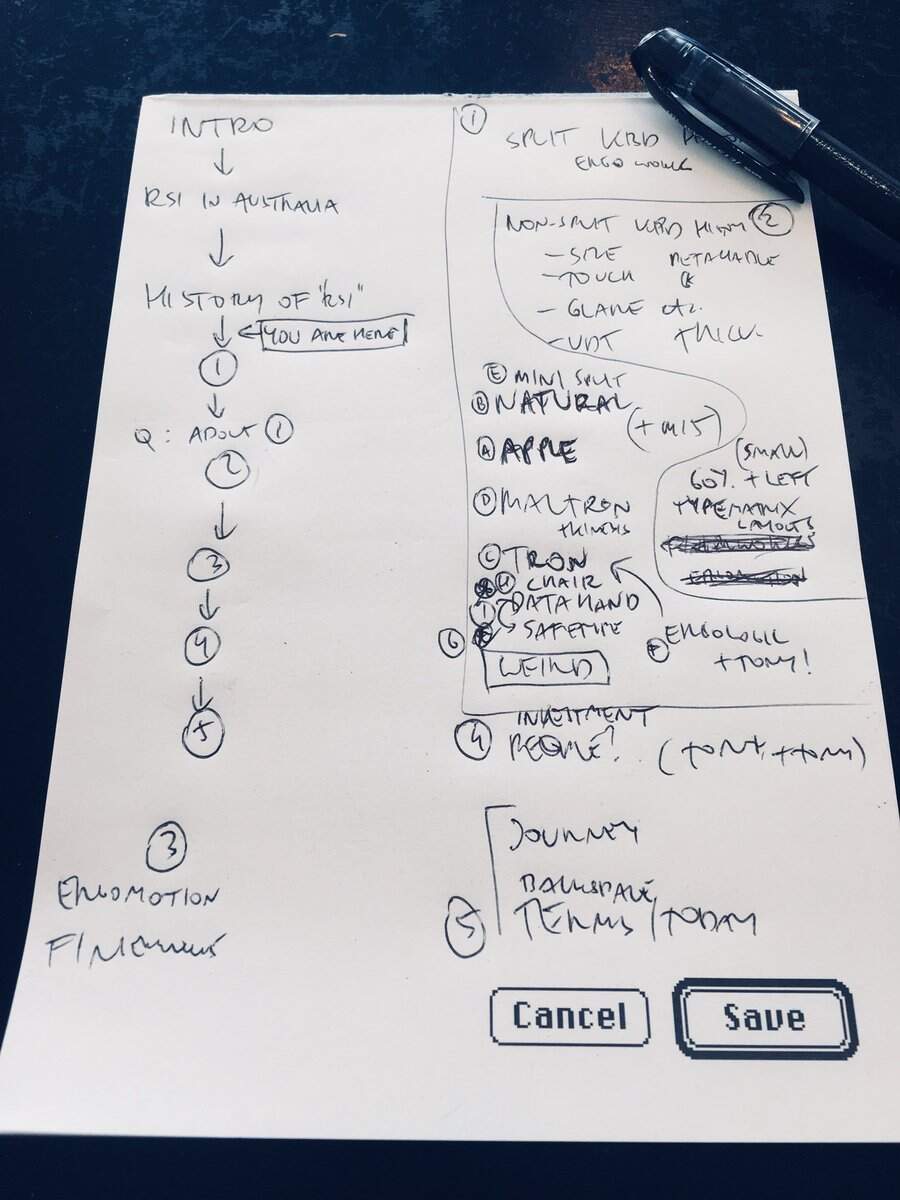 INTRO
RSI IN AUSTRALIA
HISTORY OF "RSI"
YOU ARE HERE
1
Q: ABOUT 1
2
3
4
5
3
ERGOMOTION
1
SPLIT KBD
ERGO WORK
NON-SPLIT KBD HISTORY 2
- SIZE DETACHABLE
- TOUCH
- GLARE etc.
- VDT THICK
E MINI SPLIT
B NATURAL
(+ M15)
A APPLE
(SMALL)
60% + LEFT
TYPEMATRIX
LAYOUTS
D MALTRON
+ KINESIS
C TRON
H CHAIR
I DATAHAND
SAFETYPE
6
WEIRD
F ERGOLOGIC
+ TONY!
4 INVESTMENT
PEOPLE? (TONY, + TONY)
JOURNEY
BACKSPACE
5 TERMS / TODAY
Cancel Save